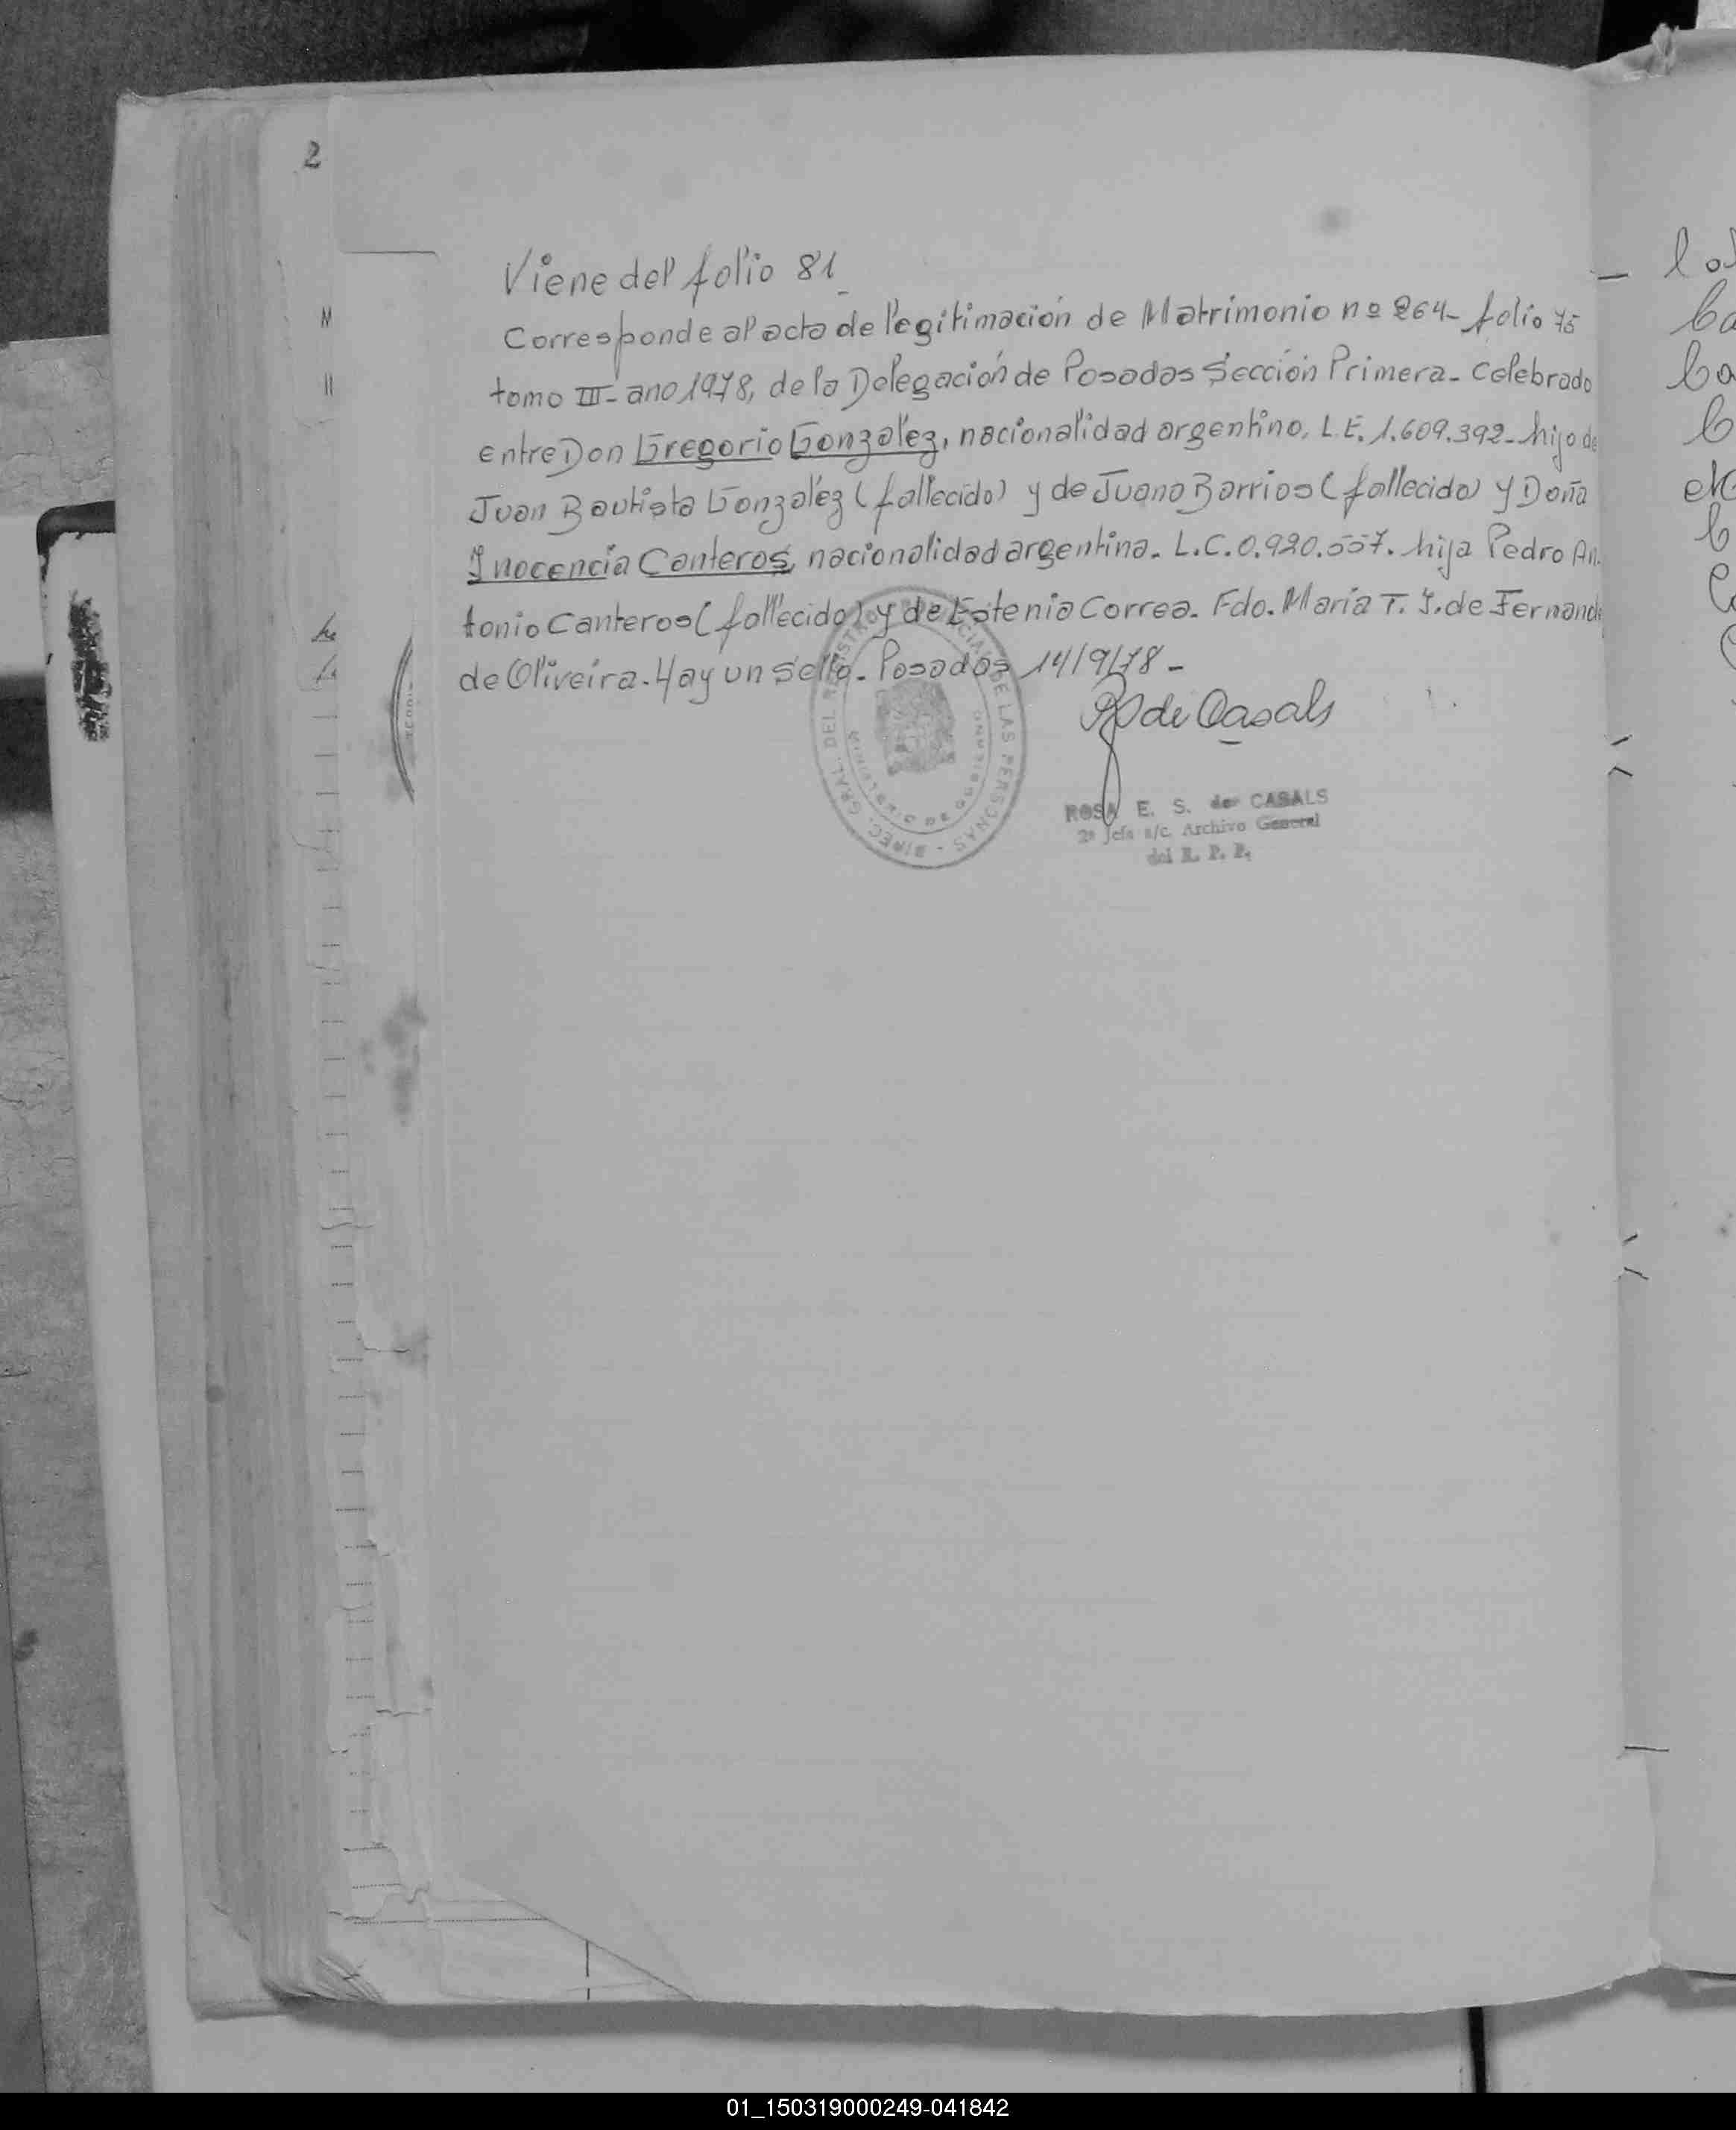 2
Viene del folio 81
Corresponde al acta de legitimación de Matrimonio nº 264- folio 75
tomo III- ano 1978, de la Delegación de Posadas Sección Primera- Celebrado
entre Don Gregorio González, nacionalidad argentino, L.E. 1.609.392- hijo de
Juan Bautista González (fallecido) y de Juana Barrios (fallecida) y Doña
Inocencia Canteros, nacionalidad argentina. L.C. 0.920.557. hija Pedro An
tonio Canteros (fallecido) y de Estenia Correa. Fdo. María T. I. de Fernand
de Oliveira. Hay un sello. Posadas 14/9/78-
de Casals
ROSA E. S. de CASALS
2ª Jefe a/c. Archivo General
del R. P. P.
DIREC. GRAL. DEL REGISTRO PROVINCIAL DE LAS PERSONAS
MINISTERIO DE GOBIERNO
01_150319000249-041842